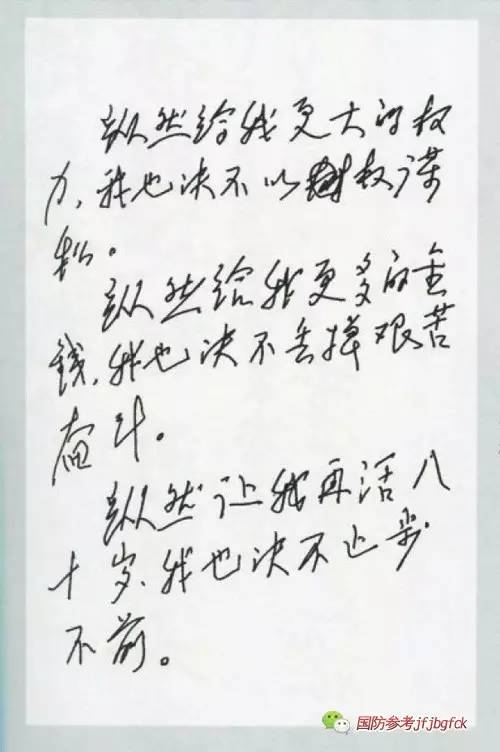 纵然给我更大的权
力,我也决不以权谋
私。
纵然给我更多的金
钱,我也决不丢掉艰苦
奋斗。
纵然让我再活八
十岁,我也决不止步
不前。
国防参考jfjbgfck